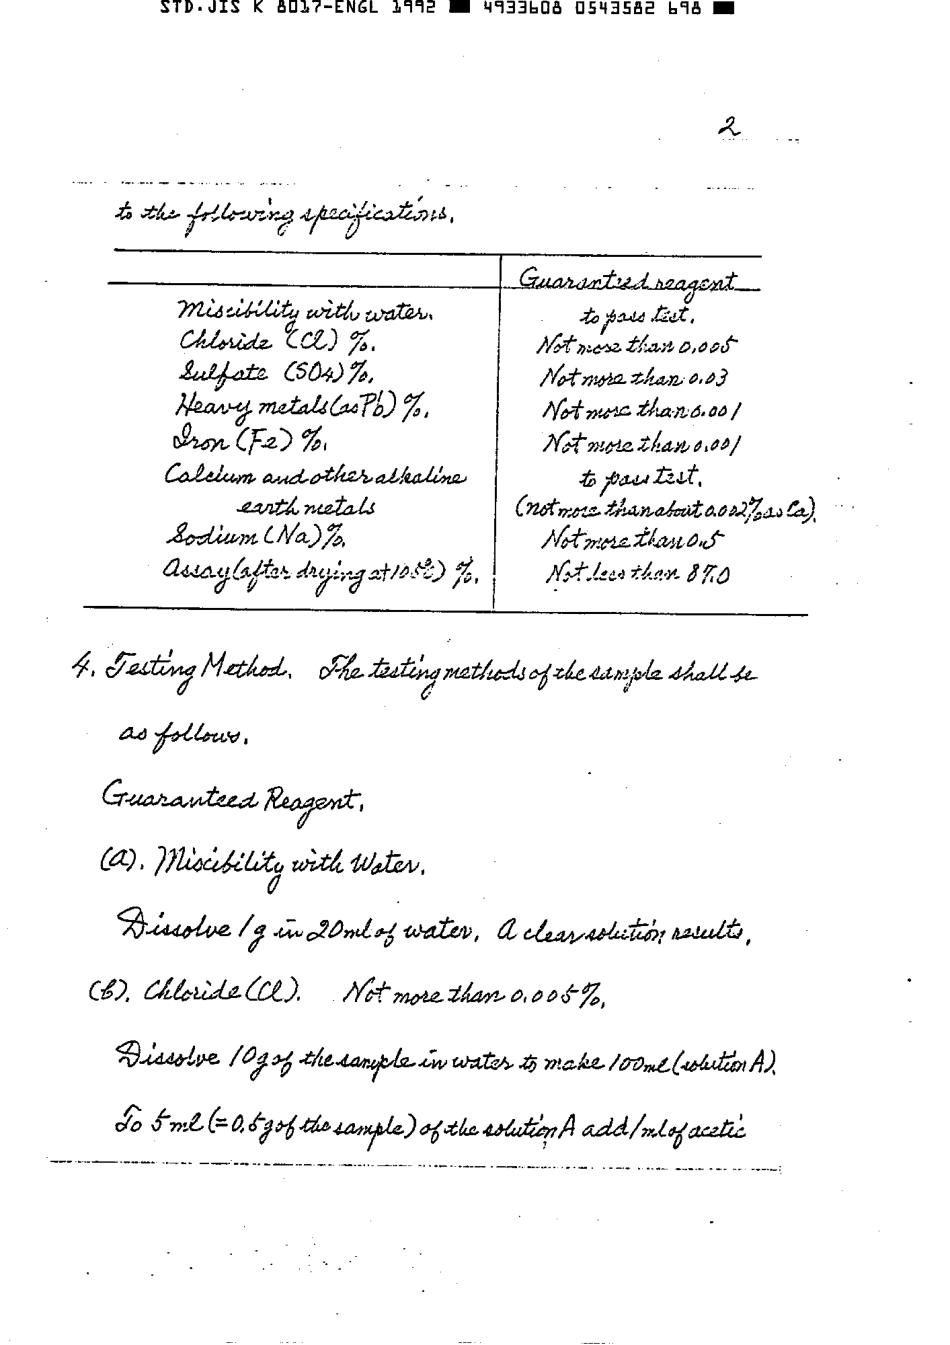 STD.JIS K 8017-ENGL 1992 ■ 4933608 0543582 698 ■
2
to the following specifications.
Guaranteed reagent
Miscibility with water. to pass test.
Chloride (Cl) %. Not more than 0.005
Sulfate (SO4) %. Not more than 0.03
Heavy metals (as Pb) %. Not more than 0.001
Iron (Fe) %. Not more than 0.001
Calcium and other alkaline to pass test.
earth metals (not more than about 0.002% as Ca).
Sodium (Na) %. Not more than 0.5
Assay (after drying at 105℃) %. Not less than 87.0
4. Testing Method. The testing methods of the sample shall be
as follows.
Guaranteed Reagent.
(a). Miscibility with Water.
Dissolve 1g in 20ml of water. A clear solution results.
(b). Chloride (Cl). Not more than 0.005%.
Dissolve 10g of the sample in water to make 100ml (solution A).
To 5ml (=0.5g of the sample) of the solution A add 1ml of acetic